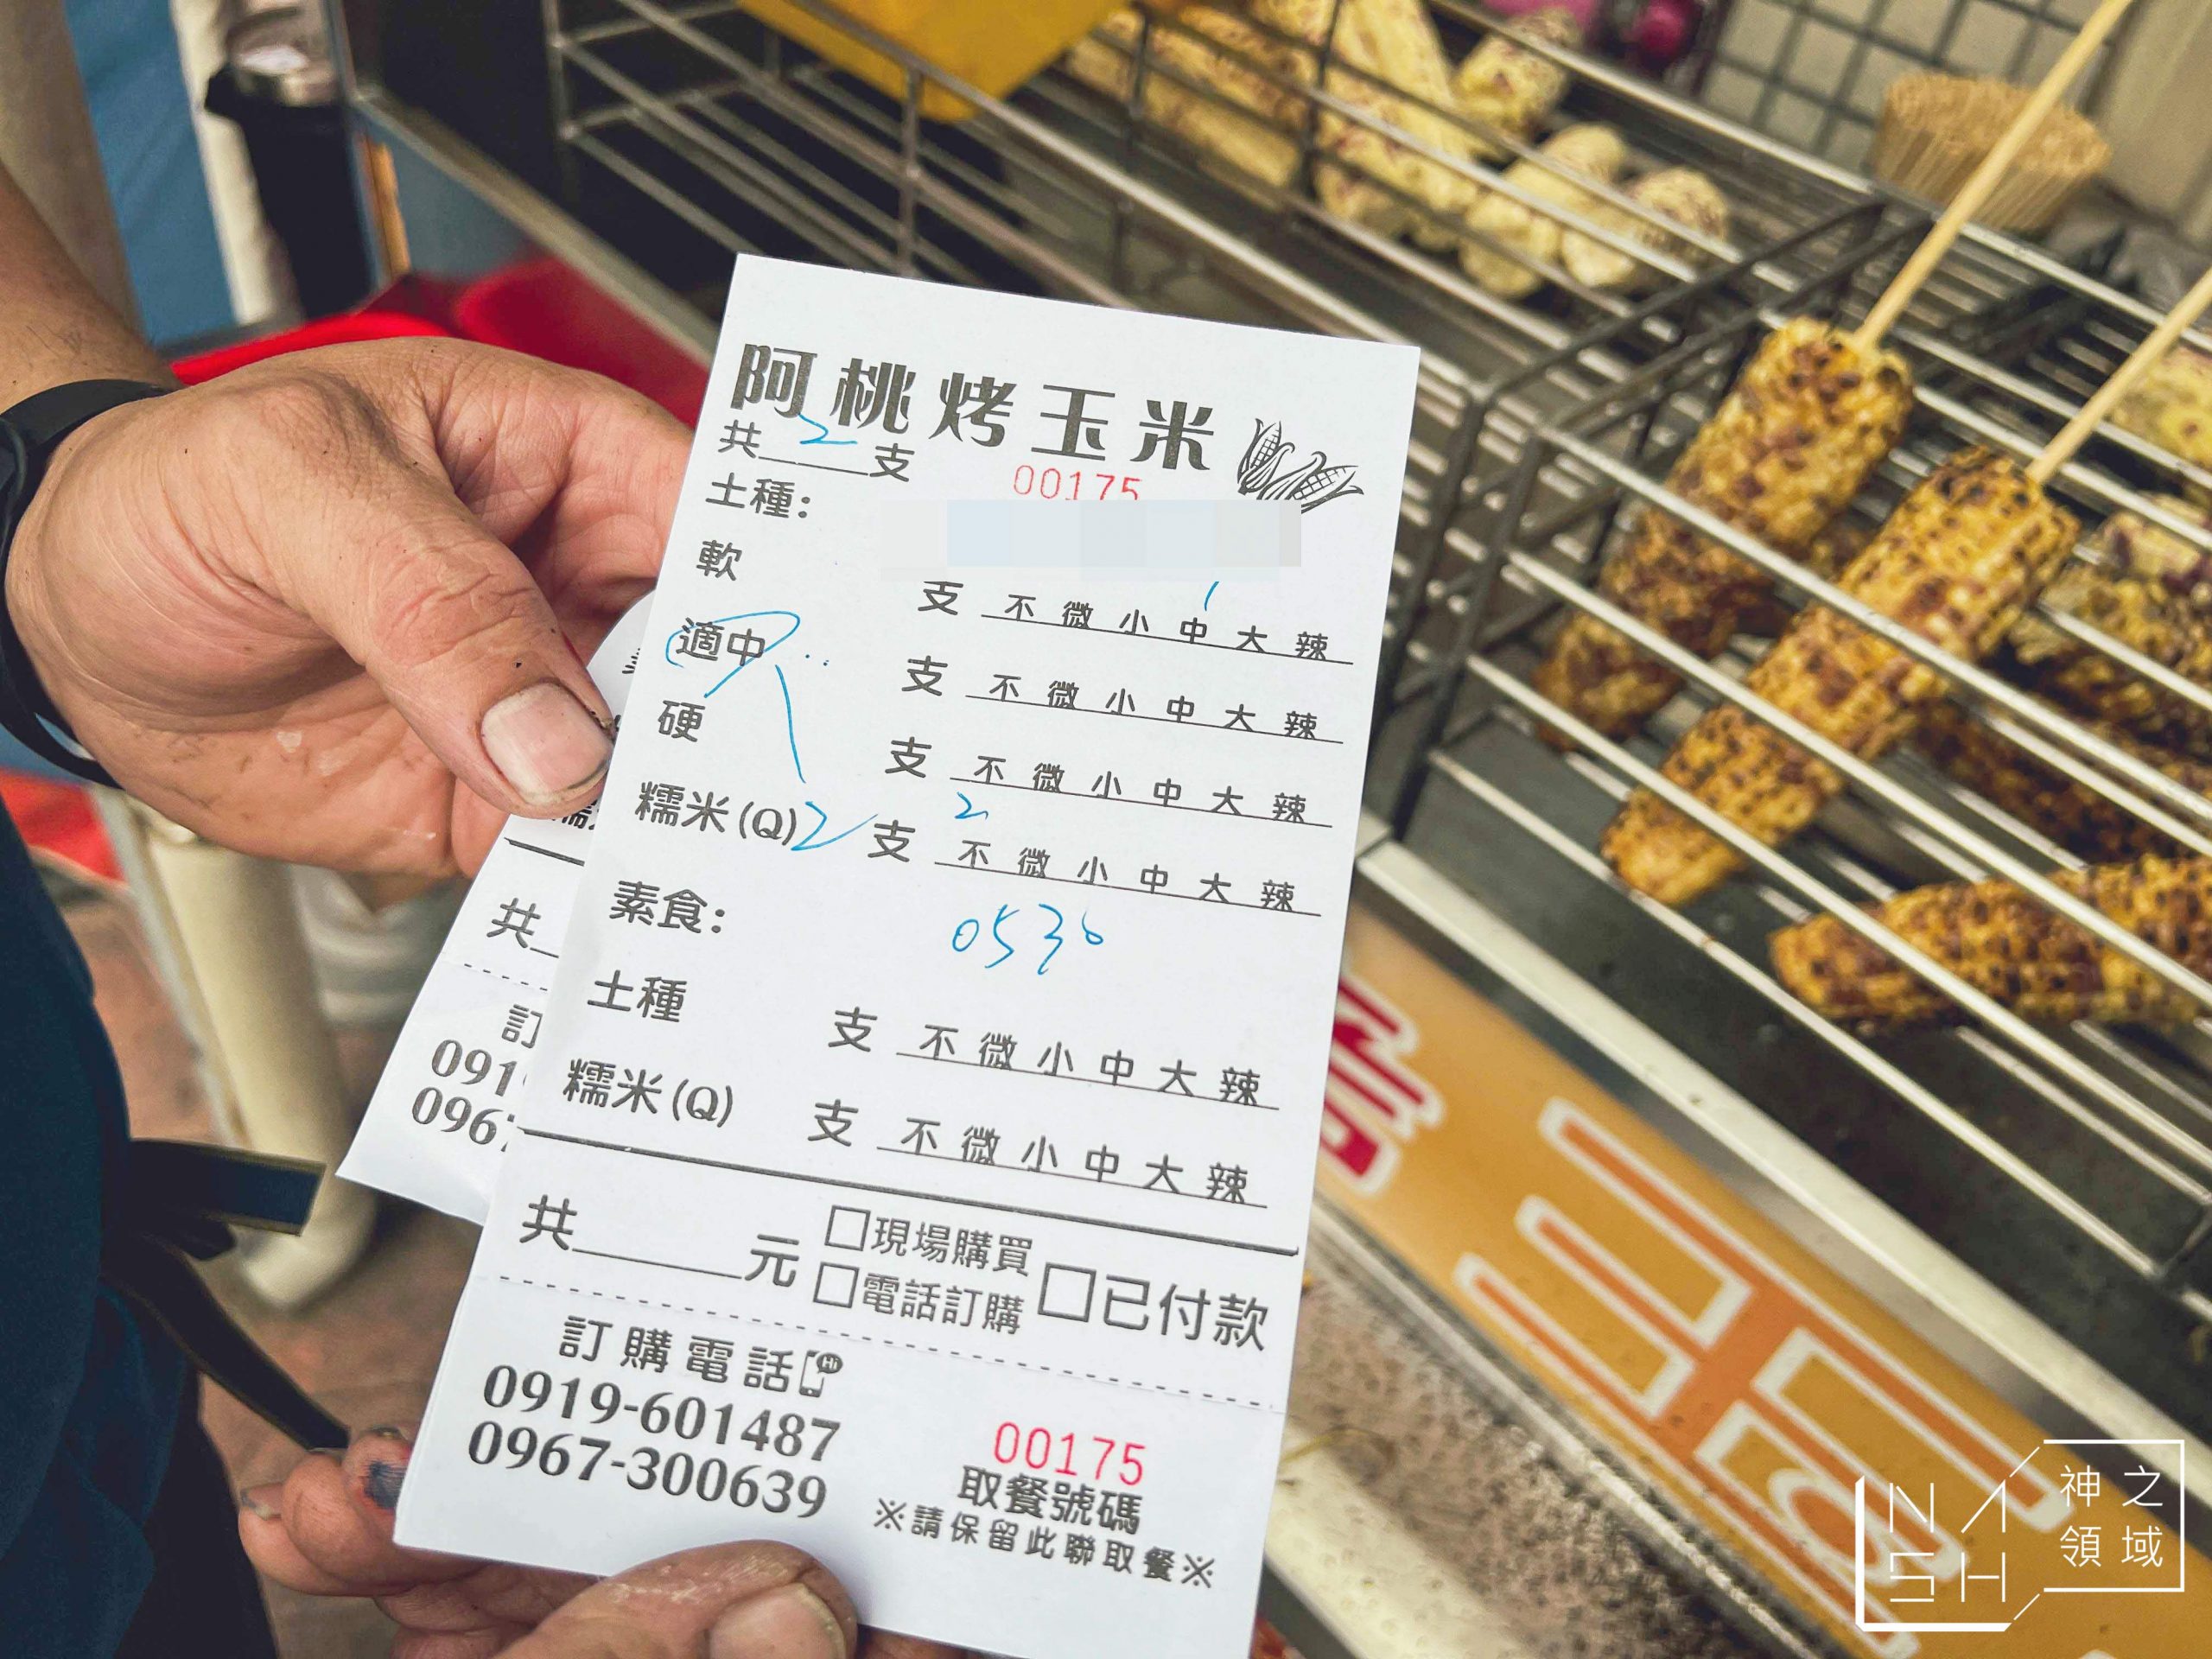 阿桃烤玉米
共 2 支
00175
土種:
軟 支 不 微 小 中 大 辣
適中 支 不 微 小 中 大 辣
硬 支 不 微 小 中 大 辣
糯米(Q) 2 支 不 微 小 中 大 辣
2
素食:
0530
土種 支 不 微 小 中 大 辣
糯米(Q) 支 不 微 小 中 大 辣
共______元 □現場購買 □已付款
□電話訂購
訂購電話
Hi
0919-601487
0967-300639
00175
取餐號碼
※請保留此聯取餐※
共
訂
091
096
NASH
神之
領域